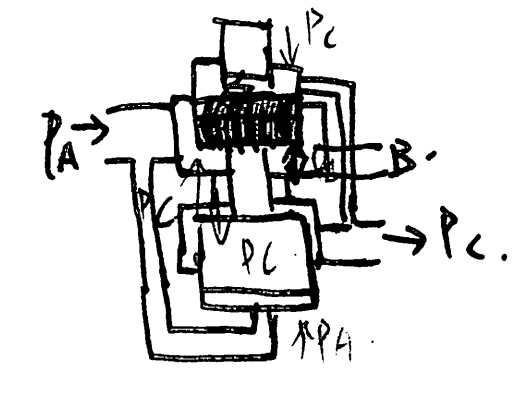 PC
PA
B.
PC
PC.
PC
PA.